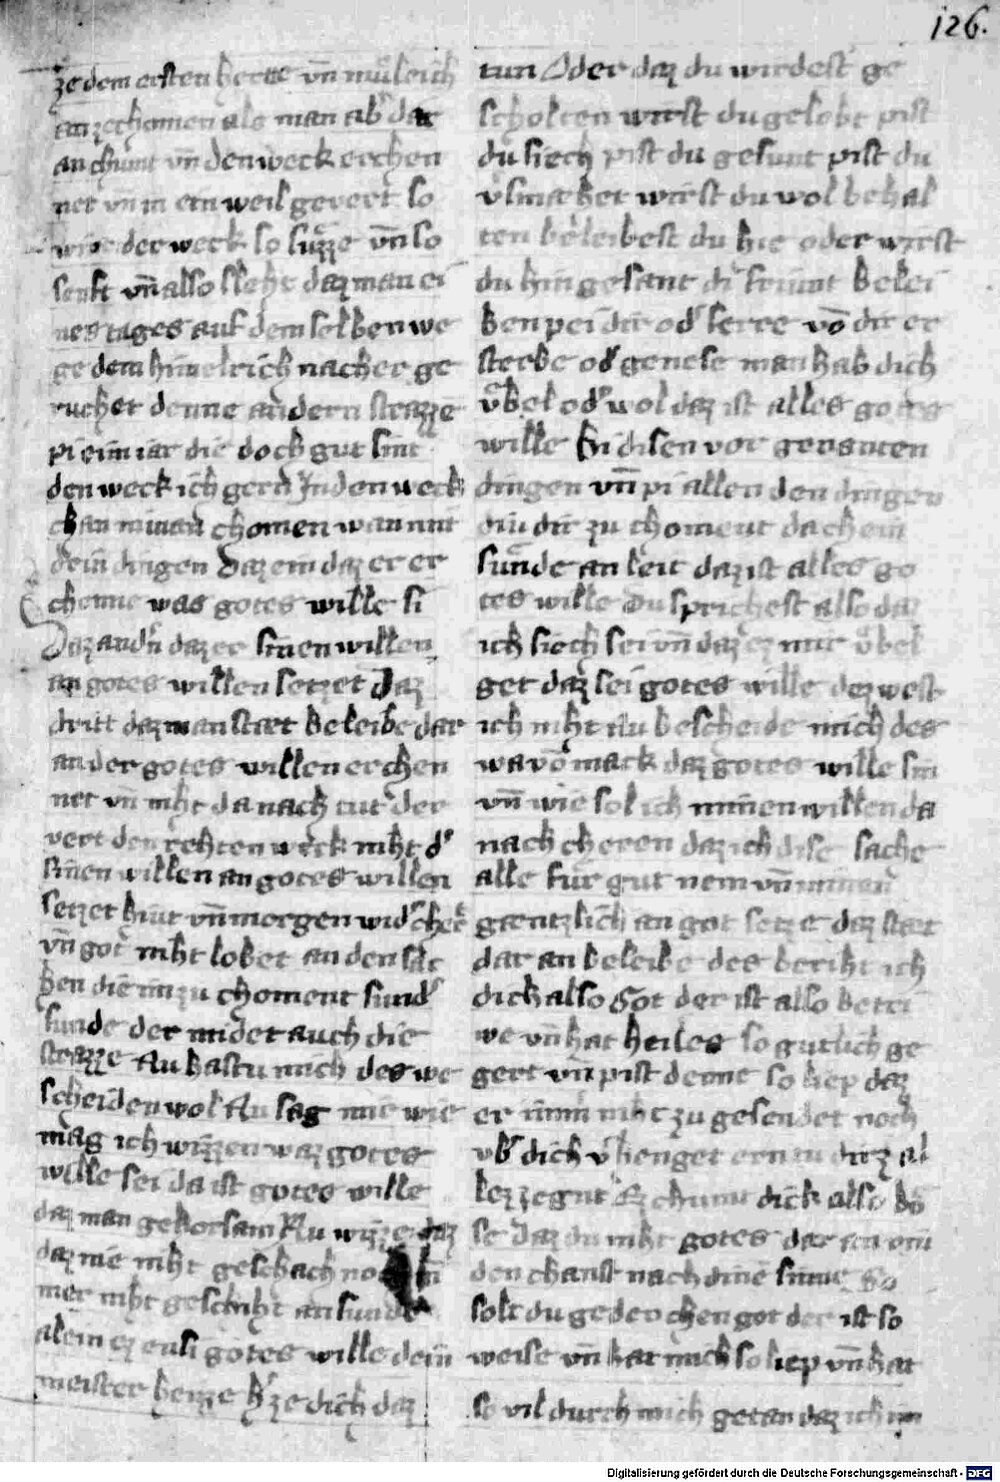 126.
ze dem ersten herte vn̄ muͤleich
an zechomen als man abˢ dar
an chumt vn̄ den weck erchen
net vn̄ in ein weil gevert so
wirt der weck so suͤzze vn̄ so
senft vn̄ also sleht daz man ei
nes tages auf dem selben we
ge dem himelrich nacher ge
rucket denne an dern strazze
pi eim iar die doch gut sint
den weck ich gern In den weck
chan niman chomen wan mit
drin dingen Daz ein daz er er
chenne was gotes wille si
Daz andˢ daz er sinen willen
an gotes willen setzet Daz
dritt daz man staet beleibe dar
an der gotes willen erchen
net vn̄ niht da nach tut der
vert den rehten weck niht dˢ
sinen willen an gotes willen
setzet hiut vn̄ morgen widˢ cheͤt
vn̄ got niht lobet an den sac
hen die im zu choment sundˢ
sunde der midet auch die
strazze Nu hastu mich des we
scheiden wol Nu sag mir wie
mag ich wizzen waz gotes
wille sei da ist gotes wille
daz man gehorsam Nu wizze daz
daz nie niht geschach noch
mer niht geschiht an sunde
alein ez ensi gotes wille dein
meister heizze dich daz
tun Oder daz du wirdest ge
scholten wirst du gelobt pist
du siech pist du gesunt pist du
vˢsmaehet wirst du wol behal
ten beleibest du hie oder wirst
du hin gesant di friunt belei
ben pei dir odˢ ferre vō dir er
sterbe odˢ genese man hab dich
vͤbel odˢ wol daz ist alles gotes
wille Bi disen vor genanten
dingen vn̄ pi allen den dingen
diu dir zu choment da chein
sunde an leit daz ist alles go
tes wille Du sprichest also daz
ich siech sei vn̄ daz ez mir vͤbel
get daz sei gotes wille dez west
ich niht Nu bescheide mich des
wa vō mack daz gotes wille sin
vn̄ wie sol ich minen willen da
nach cheren daz ich dise sache
alle fur gut nem vn̄ minen
gaentzlich an got setze daz staet
dar an beleibe des beriht ich
dich also Got der ist also getri
we vn̄ hat heiles so gutlich ge
gert vn̄ pist denne so liep daz
er nimˢ niht zu gesendet noch
vbˢ dich vˢhenget ern tu dirz al
lez ze gut Ez chumt dick also bo
se daz du niht gotes dar an vin
den chanst nach dine sinne So
solt du gedenchen got der ist so
weise vn̄ hat mich so liep vn̄ hat
so vil durch mich getan daz ich im
Digitalisierung gefördert durch die Deutsche Forschungsgemeinschaft - DFG